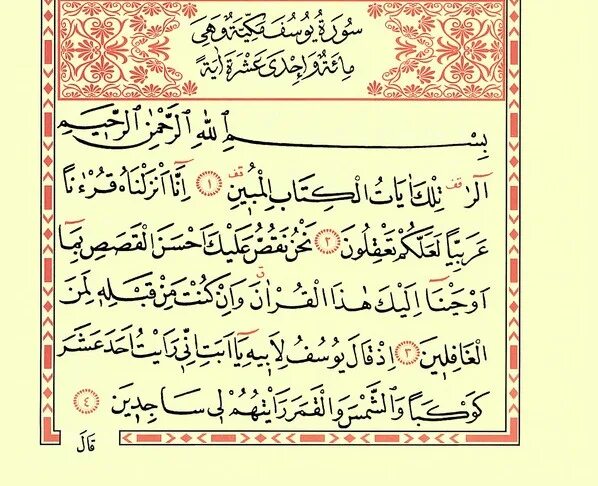 سُورَةُ يُوسُفَ مَكِّيَّةٌ وَهِيَ
مِائَةٌ وَاِحْدٰى عَشْرَةَ اٰيَةً
بِسْمِ اللهِ الرَّحْمٰنِ الرَّحِيمِ
الٓرٰ قف تِلْكَ اٰيَاتُ الْكِتَابِ الْمُبِينِ قف ﴿١﴾ اِنَّٓا اَنْزَلْنَاهُ قُرْءٰنًا
عَرَبِيًّا لَعَلَّكُمْ تَعْقِلُونَ ﴿٢﴾ نَحْنُ نَقُصُّ عَلَيْكَ اَحْسَنَ الْقَصَصِ بِمَٓا
اَوْحَيْنَٓا اِلَيْكَ هٰذَا الْقُرْاٰنَ ق وَاِنْ كُنْتَ مِنْ قَبْلِهٖ لَمِنَ
الْغَافِلٖينَ ﴿٣﴾ اِذْ قَالَ يُوسُفُ لِاَبٖيهِ يَٓا اَبَتِ اِنّٖي رَاَيْتُ اَحَدَ عَشَرَ
كَوْكَبًا وَالشَّمْسَ وَالْقَمَرَ رَاَيْتُهُمْ لٖي سَاجِدٖينَ ﴿٤﴾
قَالَ